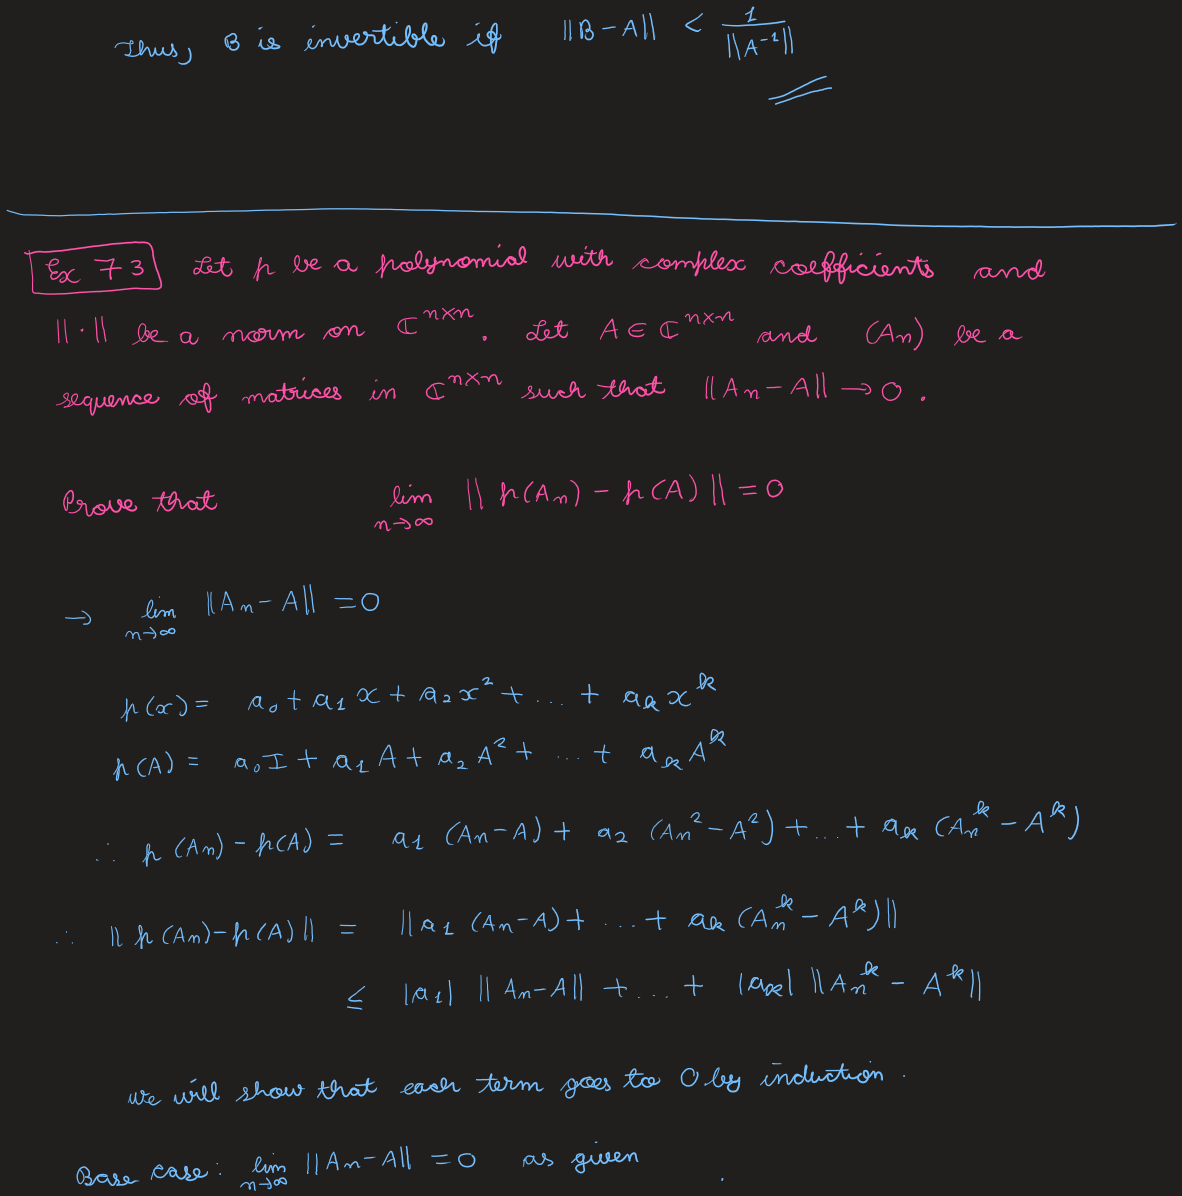 Thus, B is invertible if ||B-A|| < 1/||A^{-1}||
Ex 73 Let p be a polynomial with complex coefficients and
||·|| be a norm on ℂ^{n×n}. Let A ∈ ℂ^{n×n} and (A_n) be a
sequence of matrices in ℂ^{n×n} such that ||A_n - A|| → 0.
Prove that lim_{n→∞} || p(A_n) - p(A) || = 0
→ lim_{n→∞} ||A_n - A|| = 0
p(x) = a_0 + a_1 x + a_2 x^2 + ... + a_k x^k
p(A) = a_0 I + a_1 A + a_2 A^2 + ... + a_k A^k
∴ p(A_n) - p(A) = a_1 (A_n - A) + a_2 (A_n^2 - A^2) + ... + a_k (A_n^k - A^k)
∴ || p(A_n) - p(A) || = || a_1 (A_n - A) + ... + a_k (A_n^k - A^k) ||
≤ |a_1| || A_n - A || + ... + |a_k| || A_n^k - A^k ||
we will show that each term goes to 0 by induction.
Base case: lim_{n→∞} ||A_n - A|| = 0 as given.